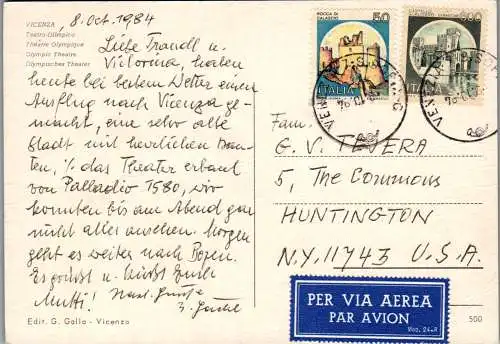 VICENZA
Teatro Olimpico
Théatre Olympique
Olympic Theatre
Olympisches Theater
8. Oct. 1984
Liebe Traudl u.
Victorina, haben
heute bei bestem Wetter einen
Ausflug nach Vicenza ge-
macht, eine sehr alte
Stadt mit herrlichen Bau-
ten, das Theater erbaut
von Palladio 1580, wir
konnten bis am Abend gar
nicht alles ansehen. Morgen
geht es weiter nach Bozen.
Es grüsst u. küsst Euch
Mutti!
Edit. G. Gallo - Vicenza
ROCCA DI
CALASCIO
50
ITALIA
ITALIA
Fam.
G. V. TEVERA
5, The Commons
HUNTINGTON
N.Y. 11743 U.S.A.
PER VIA AEREA
PAR AVION
Mod. 24-R
500